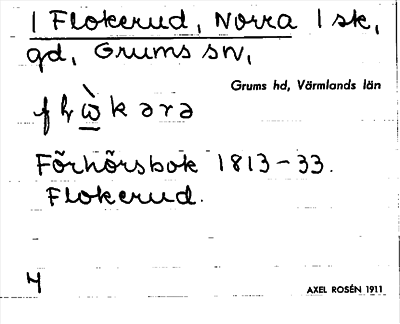 1 Flokerud, Norra 1 sk,
gd, Grums sn,
Grums hd, Värmlands län
Förhörsbok 1813-33.
Flokerud.
4
AXEL ROSÉN 1911